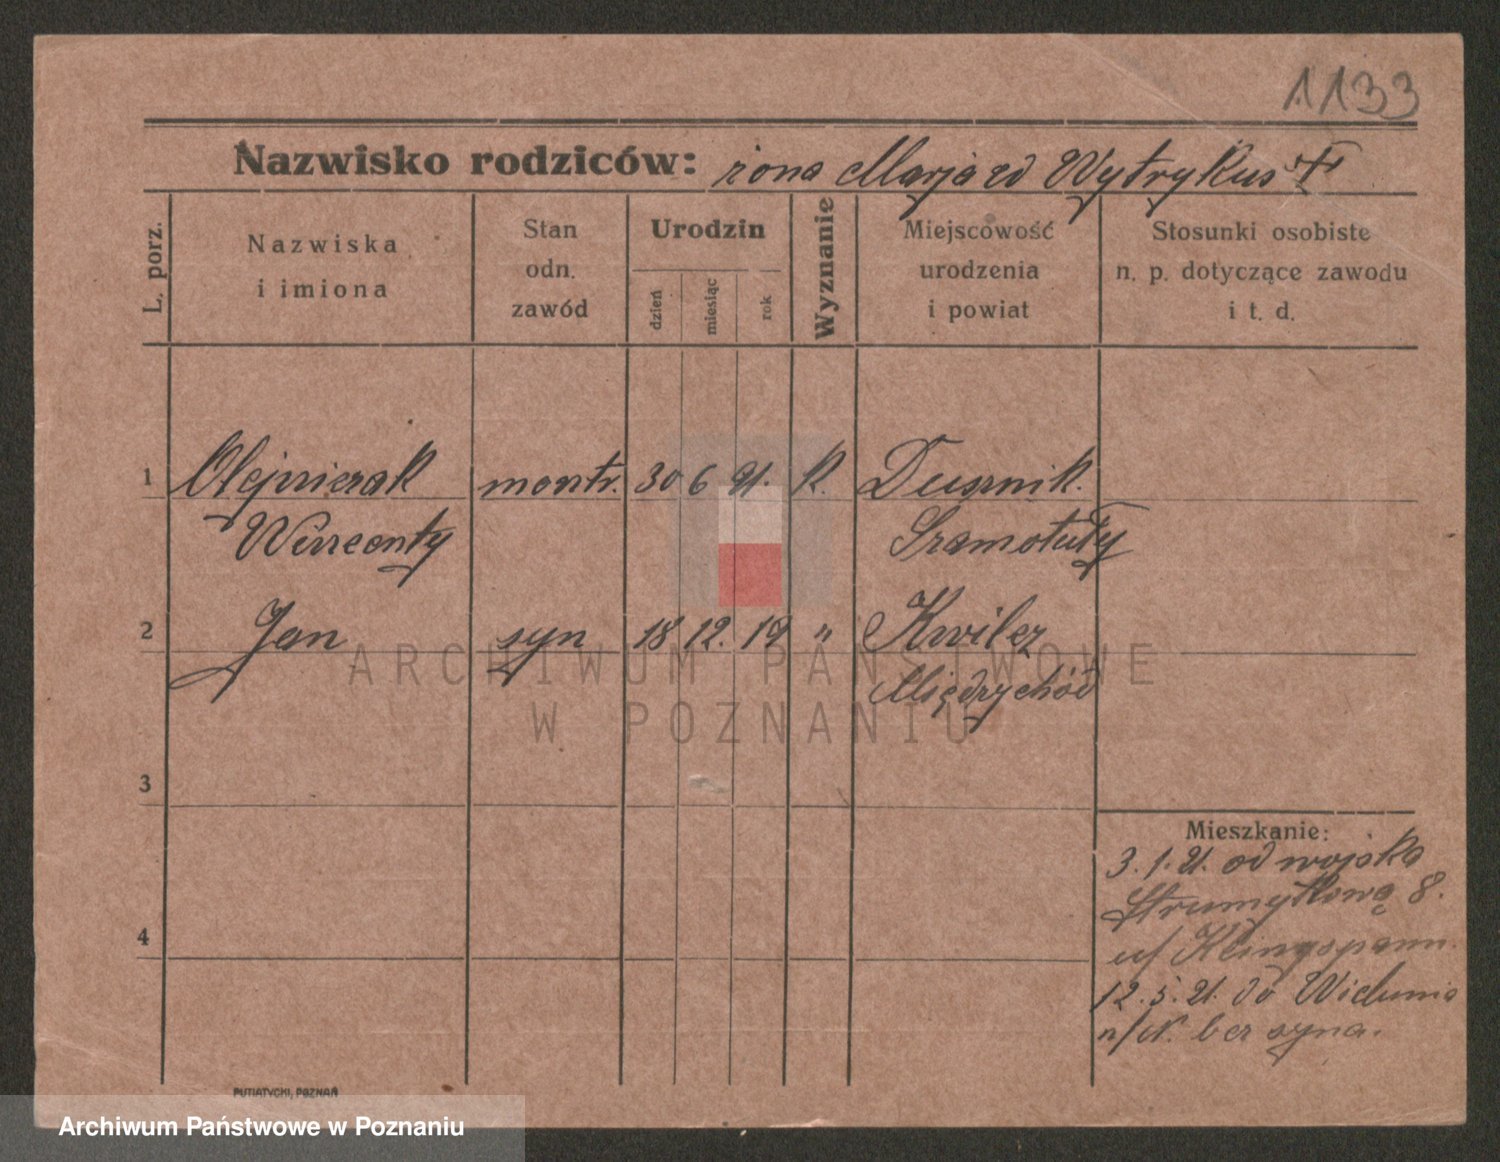 1133
Nazwisko rodziców: żona Marja zd Wytrykus
L. porz.
Nazwiska i imiona
Stan odn. zawód
Urodzin
dzień
miesiąc
rok
Wyznanie
Miejscowość urodzenia i powiat
Stosunki osobiste n. p. dotyczące zawodu i t. d.
1 Olejniczak montr. 30 6 91. K. Dusznik.
Wincenty Szamotuły
2 Jan syn 18 12. 19 " Kwilcz
Międzychód
ARCHIWUM PAŃSTWOWE
W POZNANIU
3
Mieszkanie:
3. 1. 21. od wojska
Strumykowa 8.
u/ Klingspann.
4
12. 5. 21. do Wielunia
n/N. bez syna.
PUTIATYCKI, POZNAŃ
Archiwum Państwowe w Poznaniu